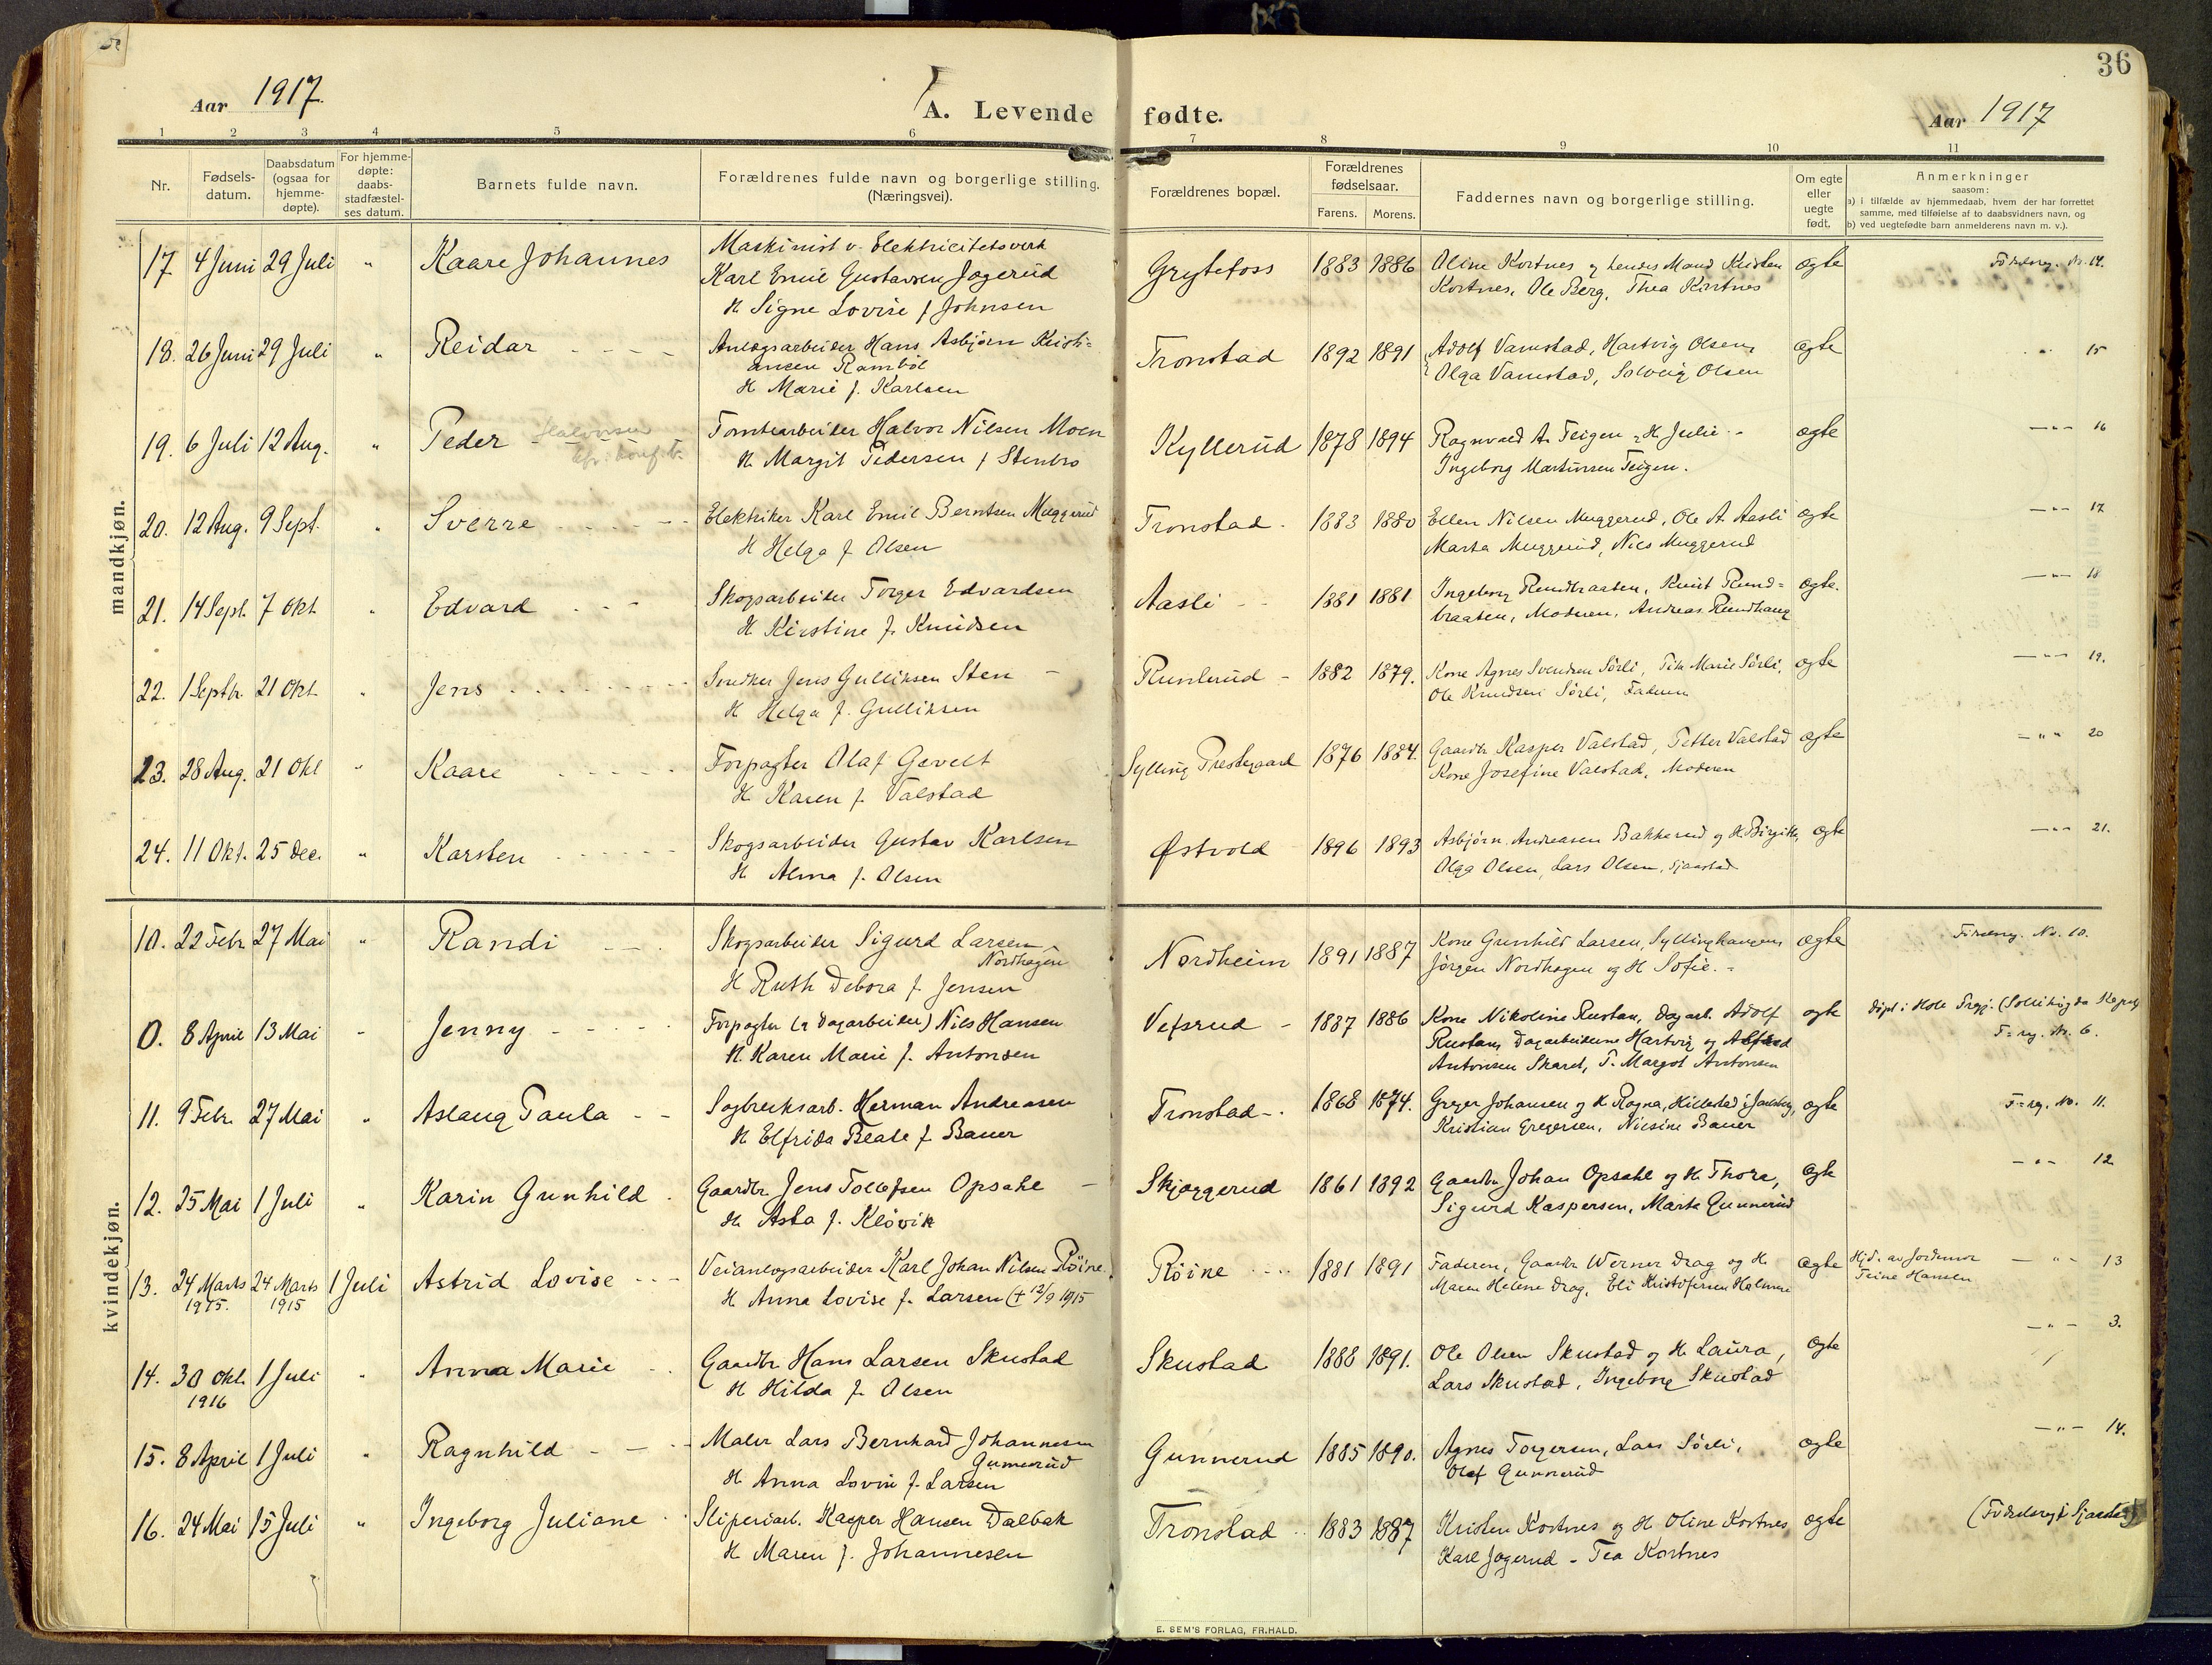 36
Aar 1917.
A. Levende fødte.
Aar 1917
1 2 3 4 5 6 7 8 9 10 11
Nr.
Fødsels-
datum.
Daabsdatum
(ogsaa for
hjemme-
døpte).
For hjemme-
døpte:
daabs-
stadfæstel-
ses datum.
Barnets fulde navn.
Forældrenes fulde navn og borgerlige stilling.
(Næringsvei).
Forældrenes bopæl.
Forældrenes
fødselsaar.
Farens. Morens.
Faddernes navn og borgerlige stilling.
Om egte
eller
uegte
født.
Anmerkninger
saasom:
a) i tilfælde av hjemmedaab, hvem der har forrettet
samme, med tilføielse af to daabsvidners navn, og
b) ved uegtefødte barn anmelderens navn m. v.).
mandkjøn.
17. 4 Juni 29 Juli " Kaare Johannes
Maskinist v. Elektricitetsverk
Karl Emil Gustavsen Jogerud
H. Signe Lovise f Johnsen
Grytefoss 1883 1886
Oline Kortnes og hendes Mand Kristen
Kortnes, Ole Berg, Thea Kortnes
egte
Fødselsreg. Nr. 14.
18. 26 Juni 29 Juli " Reidar
Anlægsarbeider Hans Asbjørn Kristi=
ansen Rambøl
H Marie f. Karlsen
Tronstad 1892 1891
Adolf Vamstad, Hartvig Olsen,
Olga Vamstad, Solveig Olsen
egte
" 15
19. 6 Juli 12 Aug. " Peder Halvorsen
Tomtearbeider Halvor Nilsen Moen
H. Margit Pedersen f Stenbro
Kyllerud 1878 1894
Ragnvald A. Teigen & H Julie
Ingeborg Martinsen Teigen.
egte
— " — 16
20. 12 Aug. 9 Sept. " Sverre
Elektriker Karl Emil Berntsen Muggerud
H Helga f Olsen
Tronstad 1883 1880
Ellen Nilsen Muggerud, Ole A. Aasli
Marta Muggerud, Nils Muggerud
egte
— " — 17
21. 14 Sept. 7 Okt. " Edvard
Skogsarbeider Torger Edvardsen
H Kirstine f. Knudsen
Aasli 1881 1881
Ingeborg Rundbraaten, Knut Rund=
braaten, Moderen, Andreas Rundhaug
egte.
— " — 18
22. 1 Septbr. 21 Okt. " Jens
Snedker Jens Gulliksen Sten
H Helga f. Gulliksen
Runlerud 1882 1879.
Kone Agnes Svendsen Sörli, Pike Marie Sörli,
Ole Knudsen Sörli, Faderen
egte
— " — 19.
23. 28 Aug. 21 Okt " Kaare
Forpagter Olaf Gevelt
H Karen f. Valstad
Sylling Prestegaard 1876 1884.
Gaardbr Kasper Valstad, Petter Valstad
Kone Josefine Valstad, Moderen
egte
— " " 20
24. 11 Okt. 25 Dec. " Karsten
Skogsarbeider Gustav Karlsen
H Alma f. Olsen
Østvold 1896 1893
Asbjørn Andreasen Bakkerud og H Birgitte,
Olga Olsen, Lars Olsen, Sjaastad
egte
— " — 21.
kvindekjøn.
10. 22 Febr. 27 Mai " Randi
Skogsarbeider Sigurd Larsen
Nordhagen
H Ruth Debora f Jensen
Nordheim 1891 1887
Kone Grunhild Larsen, Syllinghaugen
Jörgen Nordhagen og H Sofie.
egte
Födselreg. No. 10.
0. 8 April 13 Mai Jenny
Forpagter (& Dagarbeider) Nils Hansen
H. Karen Marie f. Antonsen
Vefsrud 1887 1886
Kone Nikoline Rustan, Dagarb. Adolf
Rustan, Dagarbeiderne Hartvig og Alfred
Antonsen Skaret, P. Margot Antonsen
egte
döpt i Hole Prgj. (Sollihögda Kapel)
F=reg. Nr. 6.
11. 9 Febr. 27 Mai " Aslaug Paula
Sagbruksarb. Herman Andreasen
H Elfrida Beate f Bauer
Tronstad 1868 1874.
Greger Johansen og H Ragna, Hillestad i Jarlsberg,
Kristian Gregersen, Nicsine Bauer
egte
F=reg. No. 11.
12. 25 Mai 1 Juli " Karin Gunhild
Gaardbr Jens Tollefsen Opsahl
H. Asta f. Klövik
Skjæggerud 1861 1892
Gaardbr Johan Opsahl og H Thora,
Sigurd Kaspersen, Marta Gunnerud
egte
— " — 12
13. 24 Marts 24 Marts 1 Juli Astrid Lovise
1915. 1915
Veianlægsarbeider Karl Johan Nilsen Röine
H Anna Lovise f. Larsen († 12/9 1915
Röine 1881 1891
Faderen, Gaardbr Werner Drag og H
Maren Helene Drag, Eli Kristofersen Holmen
egte
Hjd. av Jordmor
Trine Hansen
— " — 13
14. 30 Okt. 1 Juli " Anna Marie
1916
Gaardbr Hans Larsen Skustad
H Hilda f. Olsen
Skustad 1888 1891.
Ole Olsen Skustad og H Laura,
Lars Skustad, Ingeborg Skustad
egte
— " — 3.
15. 8 April 1 Juli " Ragnhild
Maler Lars Bernhard Johannesen
Gunnerud
H Anna Lovise f. Larsen
Gunnerud 1885 1890.
Agnes Torgersen, Lars Sörli,
Olaf Gunnerud
egte
— " — 14.
16. 24 Mai 15 Juli " Ingeborg Juliane
Sliperiarb. Kasper Hansen Dalbak
H Maren f. Johannesen
Tronstad 1883 1887
Kristen Kortnes og H Oline Kortnes
Karl Jogerud - Tea Kortnes
egte
(Födselsreg i Sjaastad)
E. SEM'S FORLAG, FR.HALD.